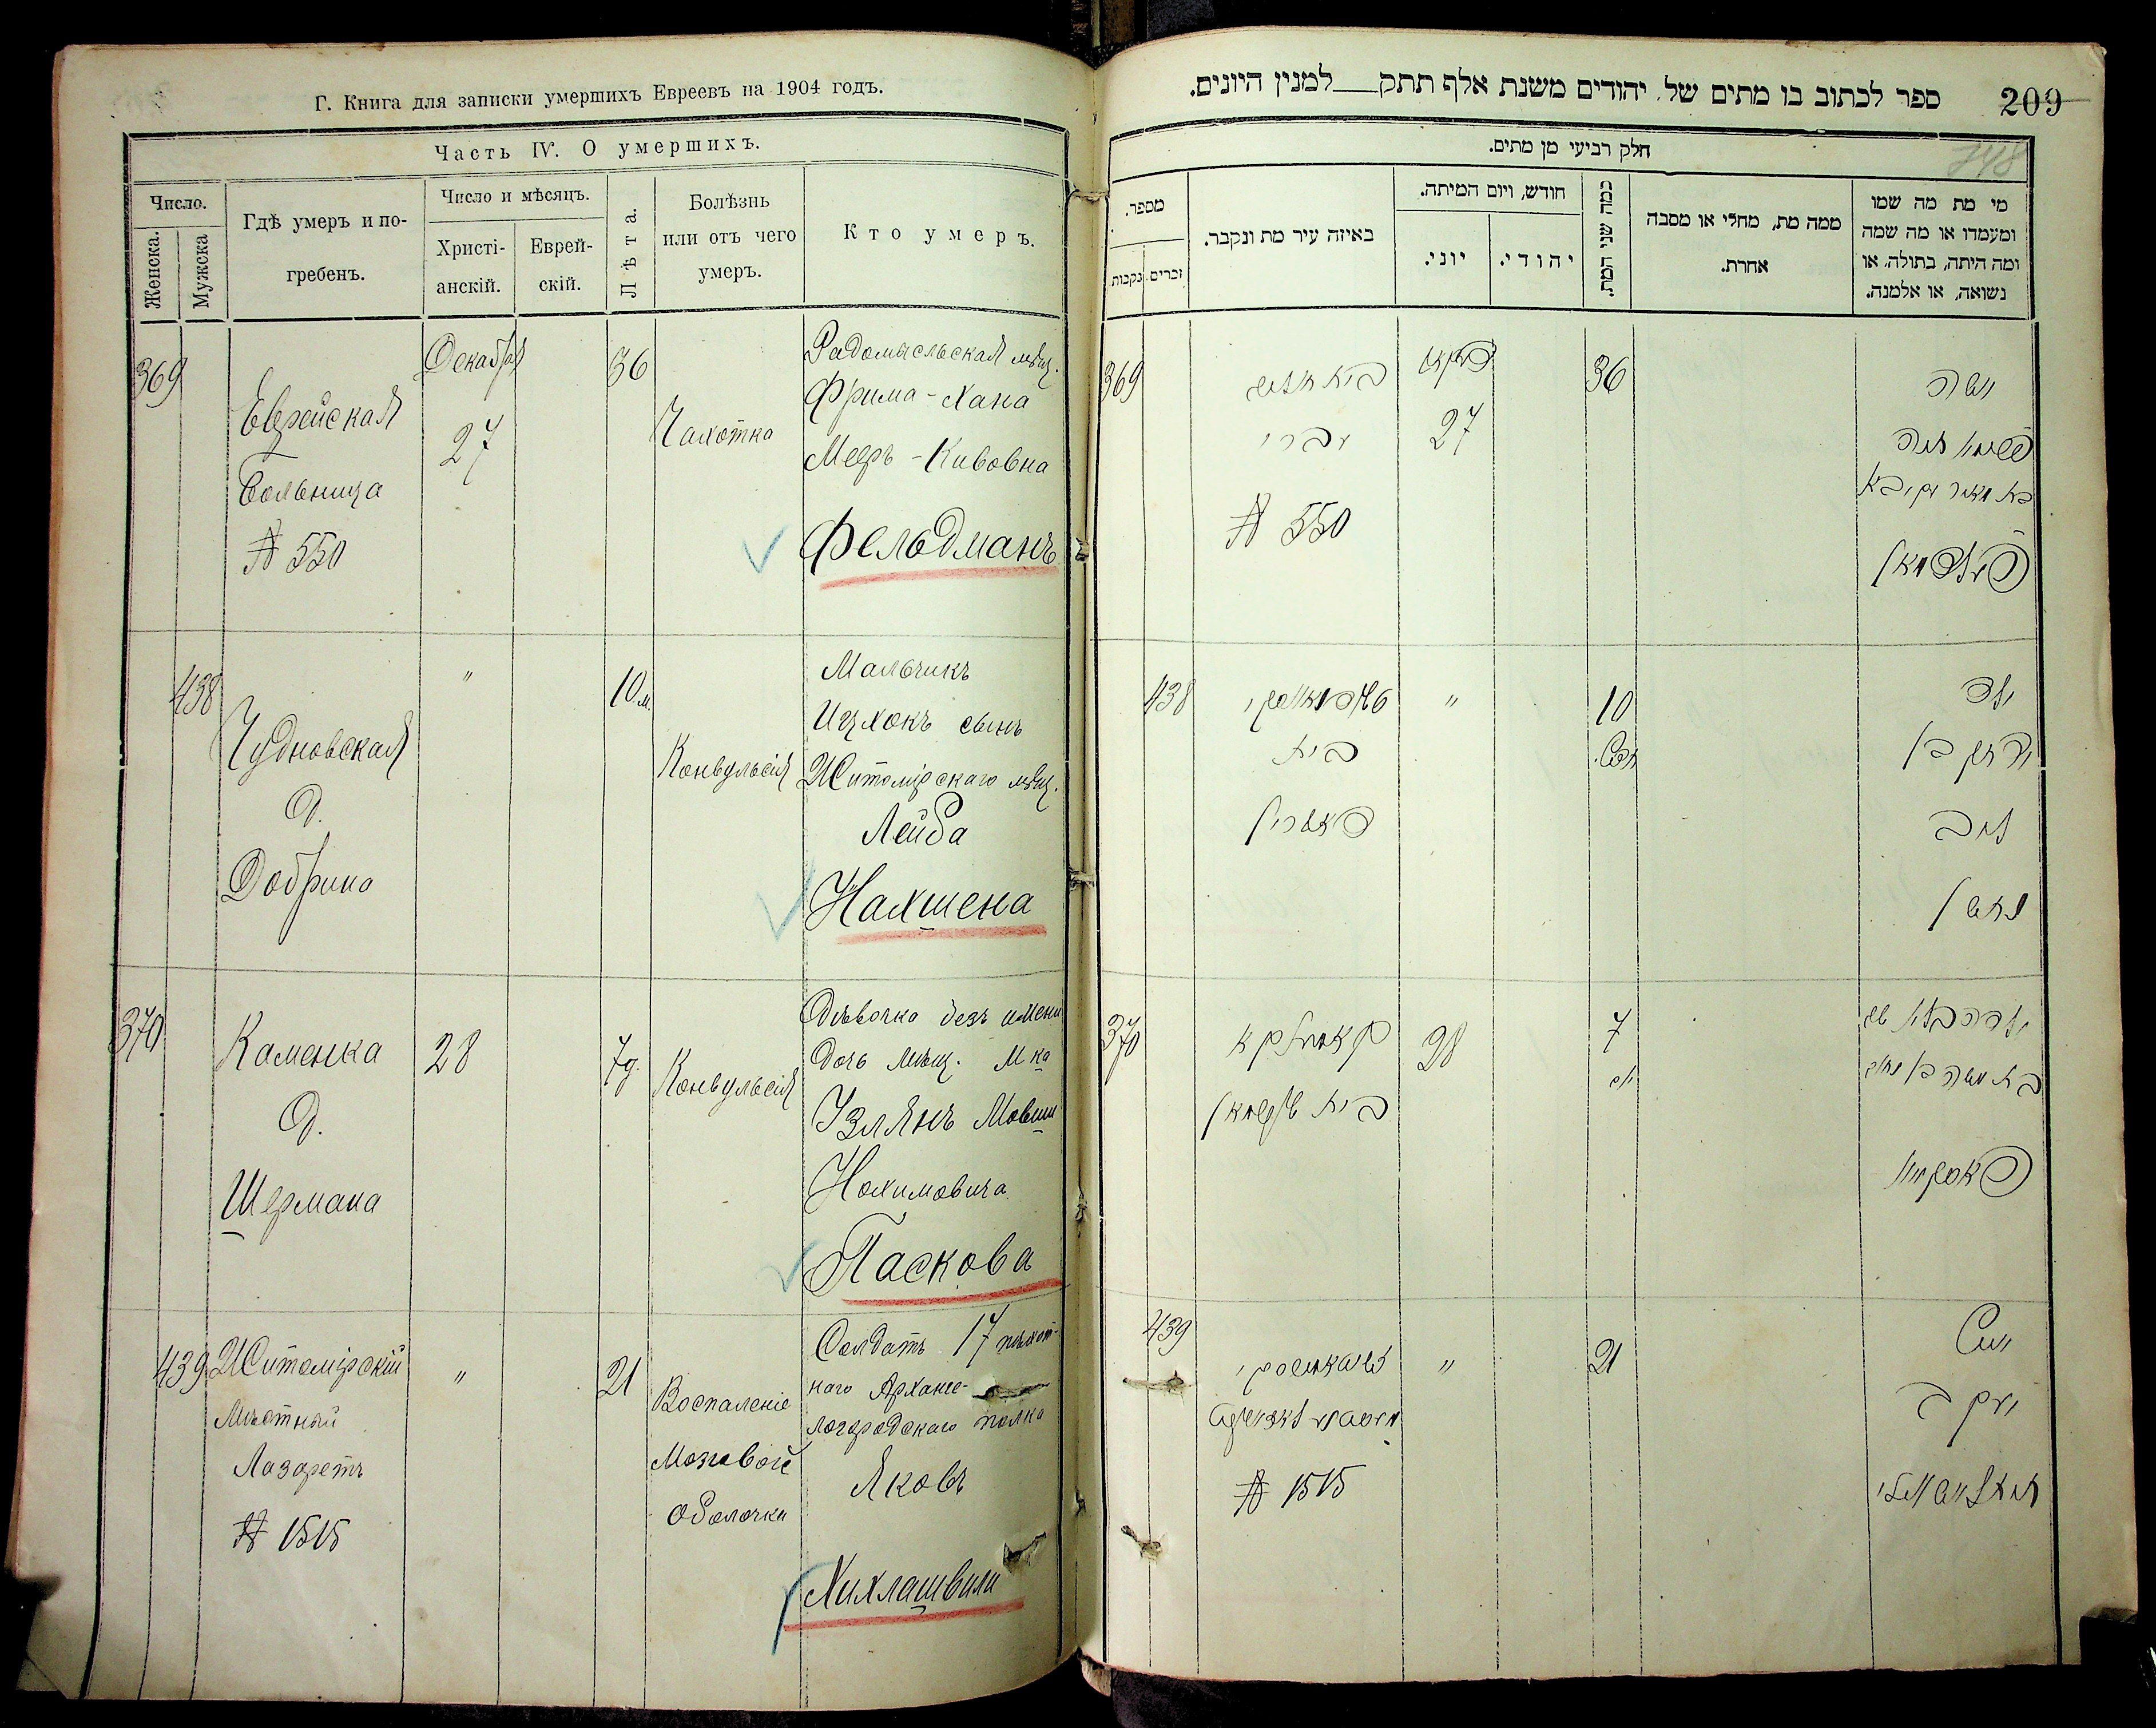 Г. Книга для записки умершихъ Евреевъ на 1904 годъ.
Часть IV. О умершихъ.
Число.
Женска.
Мужска
Гдѣ умеръ и по-
гребенъ.
Число и мѣсяцъ.
Христі-
анскій.
Еврей-
скій.
Лѣта.
Болѣзнь
или отъ чего
умеръ.
Кто умеръ.
369
Еврейская
Больница
№ 550
Декабря
27
36
Чахотка
Радомысльская мѣщ.
Фрима-Хана
Меер-Кивовна
Фельдманъ
438
Чудновская
д.
Добрина
"
10 м.
Конвульсія
Мальчикъ
Ицхокъ сынъ
Житомірскаго мѣщ.
Лейба
Нахшена
370
Каменка
д.
Шермана
28
7 д.
Конвульсія
Дѣвочка безъ имени
дочь мѣщ. М ка
Узлянъ Мовши
Нохимовича
Паскова
439
Житомірскій
Мѣстный
Лазаретъ
№ 1515
"
21
Воспаленіе
Мозговой
оболочки
Солдатъ 17 пѣхот-
наго Арханге-
логородскаго полка
Яковъ
Хихлашвили
ספר לכתוב בו מתים של יהודים משנת אלף תתק למנין היונים.
209
748
חלק רביעי מן מתים.
מספר.
זכרים.
נקבות.
באיזה עיר מת ונקבר.
חודש, ויום המיתה.
יוני.
יהודי.
כמה שני המת.
ממה מת, מחלי או מסבה
אחרת.
מי מת מה שמו
ומעמדו או מה שמה
ומה היתה, בתולה, או
נשואה, או אלמנה.
369
№ 550
27
36
פעלדמאן
438
בית
"
10
חדש
ילד
יצחק בן
ליב
נחשן
370
בית שערמאן
28
7
439
"
21
№ 1515
יעקב